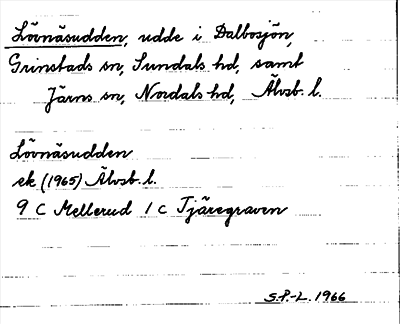 Lövnäsudden, udde i Dalbosjön,
Grinstads sn, Sundals hd, samt
Järns sn, Nordals hd, Älvsb. l.
Lövnäsudden
ek (1965) Älvsb. l.
9 C Mellerud 1 c Tjäregraven
S.P.-L. 1966